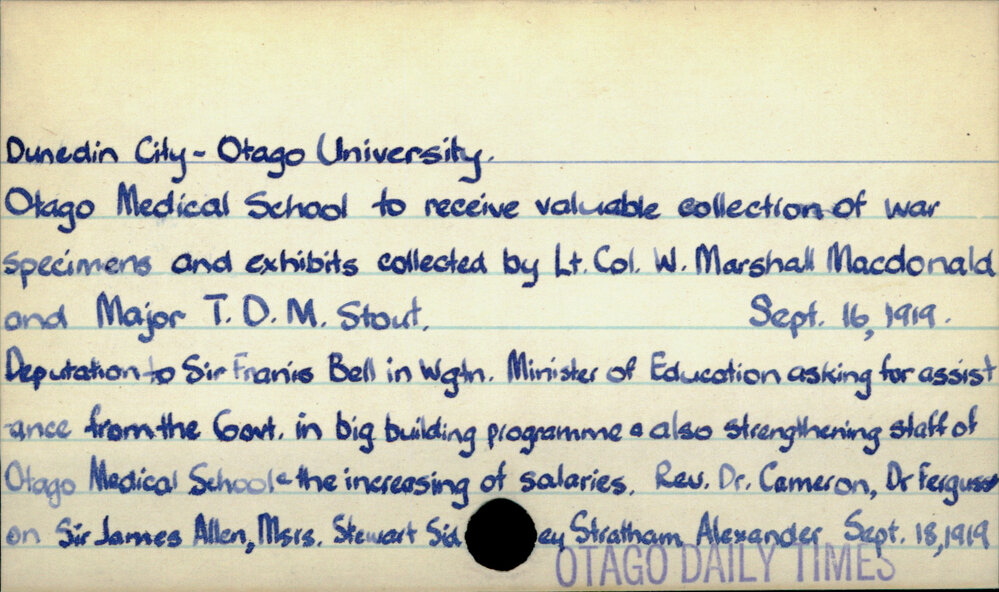 Dunedin City - Otago University.
Otago Medical School to receive valuable collection of war
specimens and exhibits collected by Lt. Col. W. Marshall Macdonald
and Major T. D. M. Stout. Sept. 16, 1919.
Deputation to Sir Franis Bell in Wgtn. Minister of Education asking for assist
-ance from the Govt. in big building programme & also strengthening staff of
Otago Medical School & the increasing of salaries. Rev. Dr. Cameron, Dr Ferguss
on Sir James Allen, Msrs. Stewart Sid ey Stratham Alexander Sept. 18, 1919
OTAGO DAILY TIMES